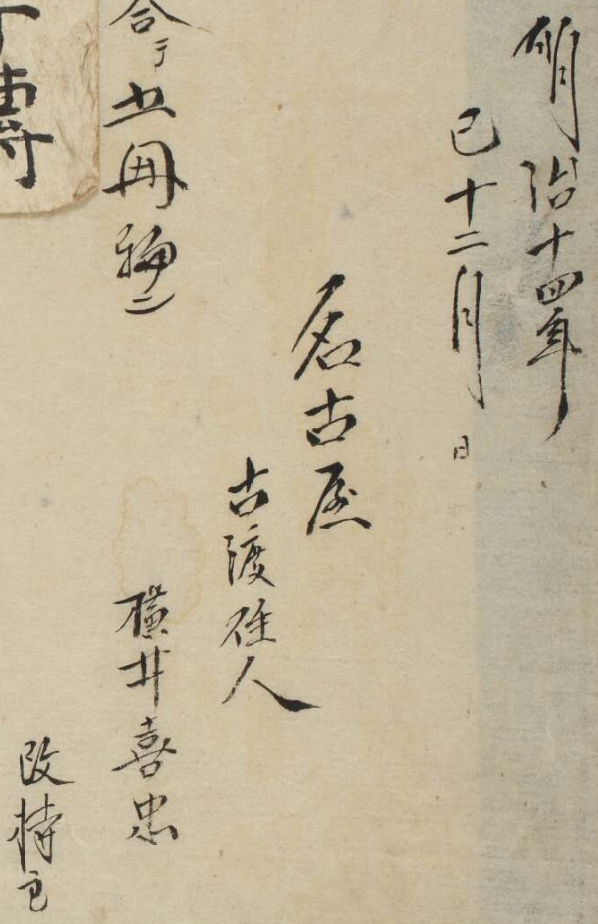 明治十四年
巳十二月 日
名古屋
古渡住人
横井喜忠
改持主
合テ五冊物ニ